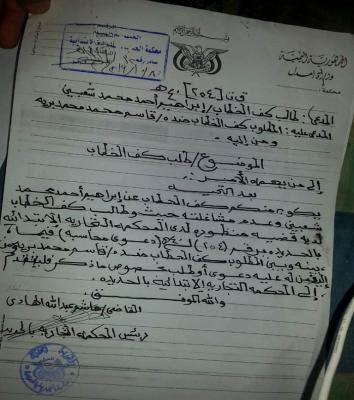 الجمهورية اليمنية
وزارة العدل
ق ت (٢٥٤) ٤٠هـ
المدعي: طالب كف الخطاب/ إبراهيم أحمد محمد شعيبي
المدعى عليه: المطلوب كف الخطاب ضده/ قاسم محمد محمد
ومن إليه
الموضوع/ طلب كف الخطاب
إلى من يهمه الأمر
بعد التحية
يكون منكم كف الخطاب عن إبراهيم أحمد محمد
شعيبي وعدم مشاغلته حيث وطالب كف الخطاب
لديه قضية منظورة لدى المحكمة التجارية الابتدائية
بالحديدة برقم (٢٥٤) لسنة ٤٠هـ (دعوى محاسبة) فيما
بينه وبين المطلوب كف الخطاب ضده/ قاسم محمد
ومن له عليه دعوى أو طلب بخصوص ما ذكر فليتقدم
إلى المحكمة التجارية الابتدائية بالحديدة
والله الموفق
القاضي/ هاشم عبدالله الهادي
رئيس المحكمة التجارية بالحديدة